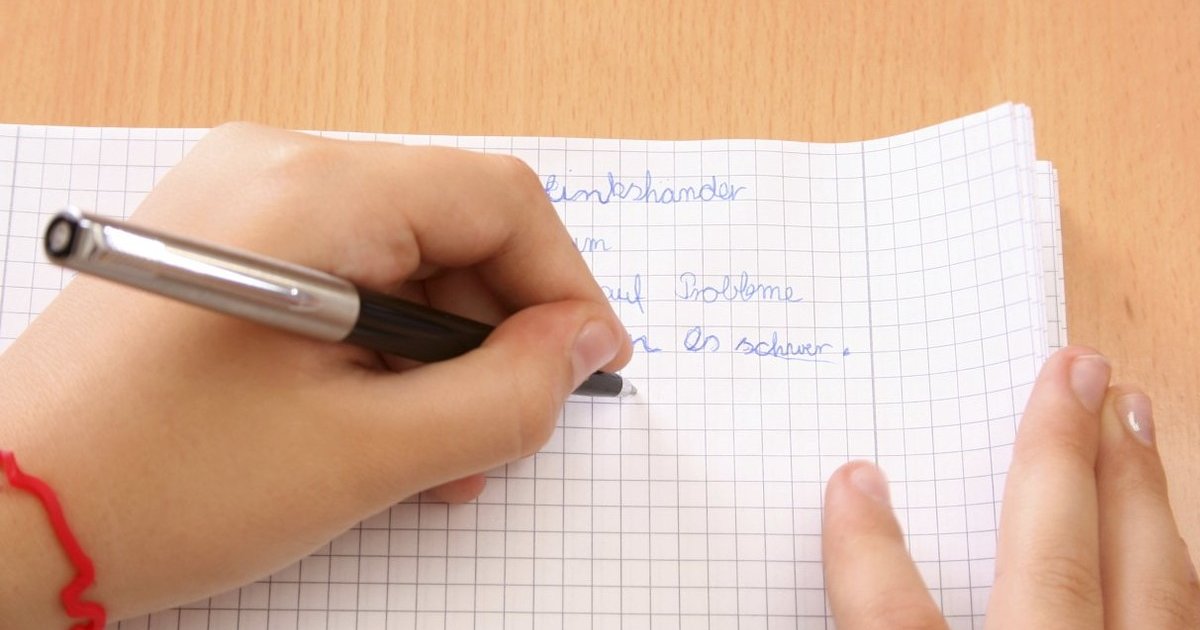 Linkshänder
um
auf Probleme
n es schwer.